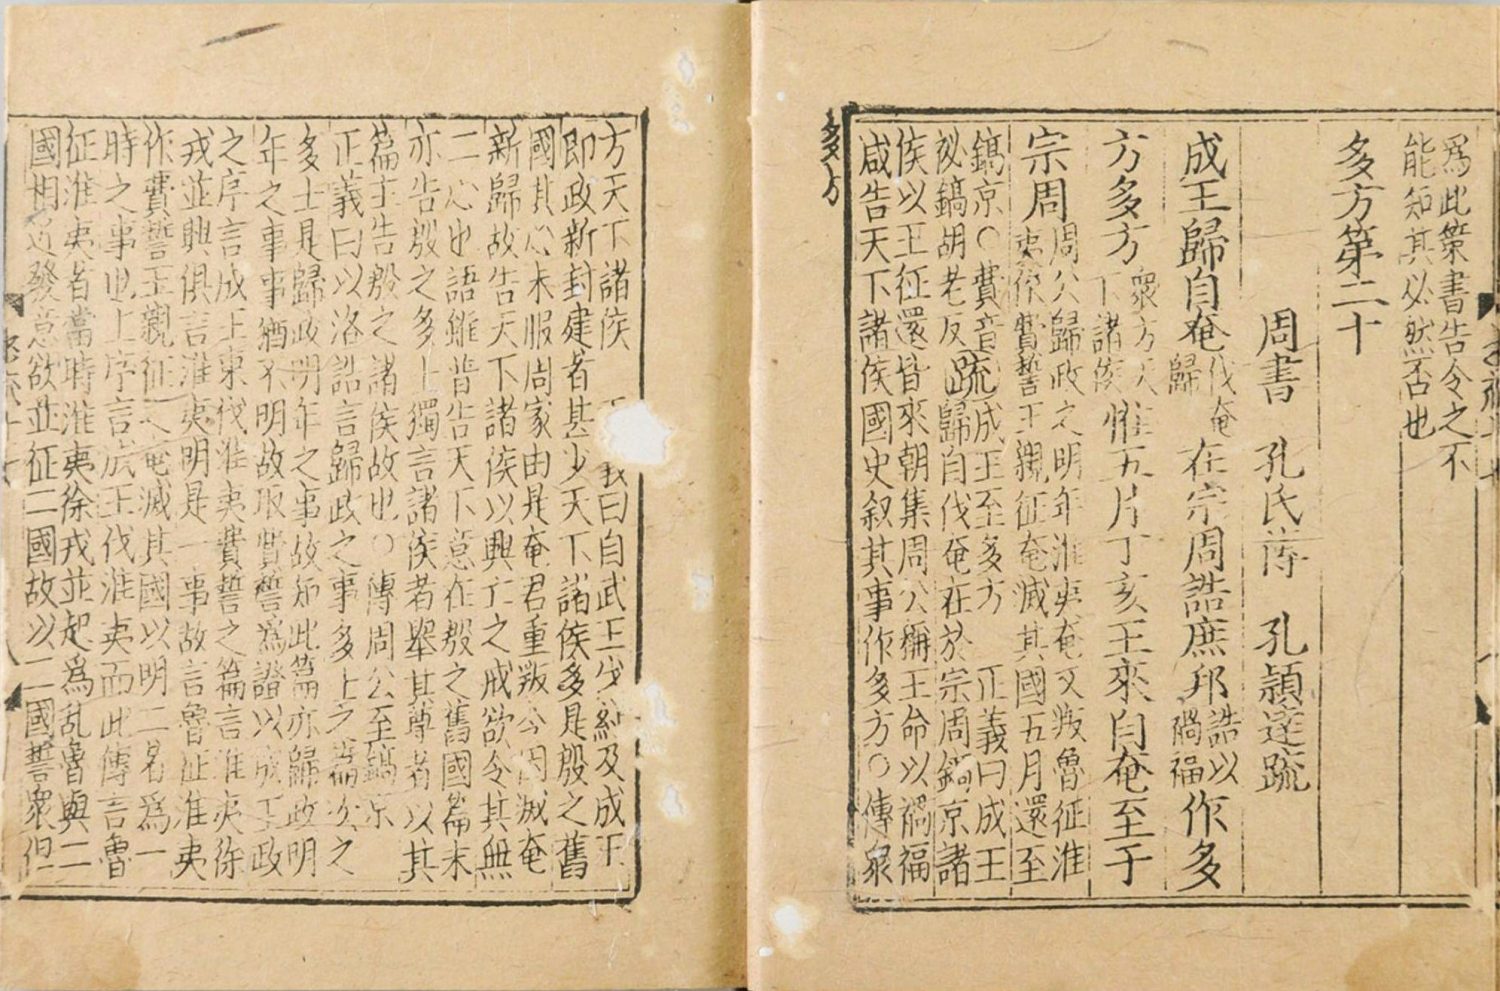 為此策書告令之不
能知其必然否也
多方第二十
周書 孔氏傳 孔穎達疏
成王歸自奄伐奄歸在宗周誥庶邦誥以禍福作多
方多方衆方天下諸侯惟五月丁亥王來自奄至于
宗周周公歸政之明年淮夷奄又叛魯征淮
夷作費誓王親征奄滅其國五月還至
鎬京○費音祕鎬胡老反疏成王至多方 正義曰成王
歸自伐奄在於宗周鎬京諸
侯以王征還皆來朝集周公稱王命以禍福
咸告天下諸侯國史叙其事作多方○傳衆
多方
方天下諸侯 義曰自武王伐紂及成王
即政新封建者甚少天下諸侯多是殷之舊
國其心未服周家由是奄君重叛今因滅奄
新歸故告天下諸侯以興亡之戒欲令其無
二心也語雖普告天下意在殷之舊國篇末
亦告殷之多士獨言諸侯者舉其尊者以其
篇主告殷之諸侯故也○傳周公至鎬京
正義曰以洛誥言歸政之事多士之篇次之
多士是歸政明年之事故知此篇亦歸政明
年之事事猶不明故取費誓為證以成王政
之序言成王東伐淮夷費誓之篇言淮夷徐
戎並興俱言淮夷明是一事故言魯征淮夷
作費誓王親征之奄滅其國以明二者為一
時之事也上序言成王伐淮夷而此傳言魯
征淮夷者當時淮夷徐戎並起爲乱魯與二
國相近發意欲並征二國故以二國誓衆但